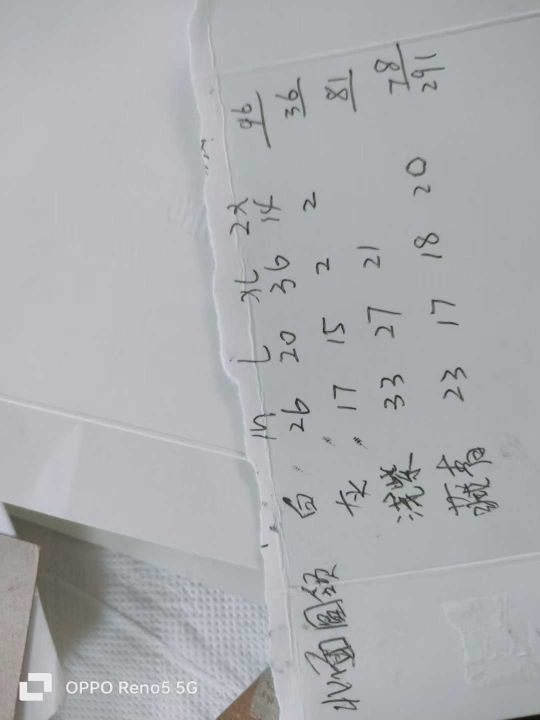 M L XL 2X
圆领
白 26 20 36 14 96
灰 17 15 2 2 36
浅紫 33 27 21 81
藏青 23 17 18 20 78
291
OPPO Reno5 5G